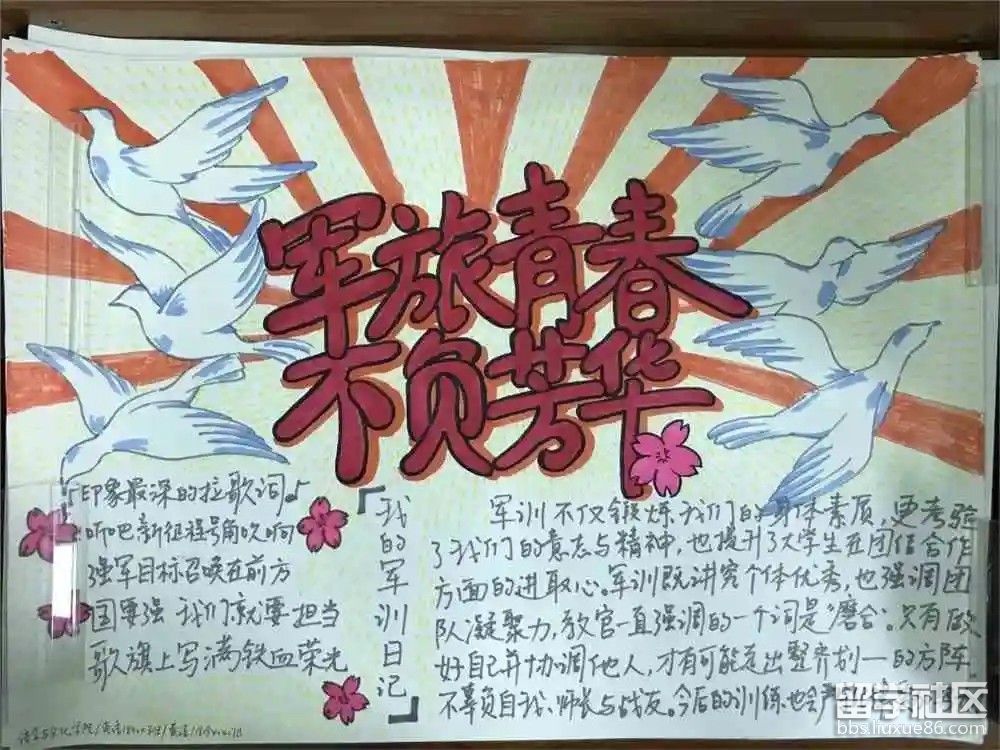 军旅青春
不负芳华
「印象最深的拉歌词」
听吧新征程号角吹响
强军目标召唤在前方
国要强 我们就要担当
歌旗上写满铁血荣光
「我的军训日记」
军训不仅锻炼我们的身体素质,更考验
了我们的意志与精神,也提升了大学生在团结合作
方面的进取心。军训既讲究个体优秀,也强调团
队凝聚力,教官一直强调的一个词是"磨合"。只有做
好自己并协调他人,才有可能走出整齐划一的方阵
不辜负自我、师长与战友。今后的训练也会严
留学社区
bbs.liuxue86.com